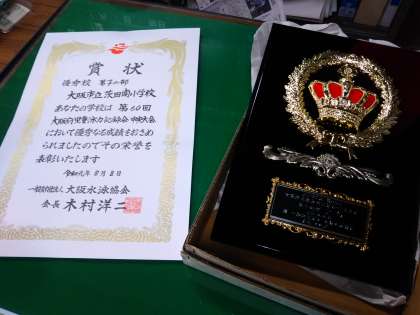 賞状
優会校 男子の部
大阪市立茨田南小学校
あなたの学校は 第60回
大阪府児童泳力記録会 中央大会
において優秀なる成績をおさめ
られましたのでその栄誉を
表彰いたします
令和元年 9月 8日
一般財団法人 大阪水泳協会
会長 木村洋二